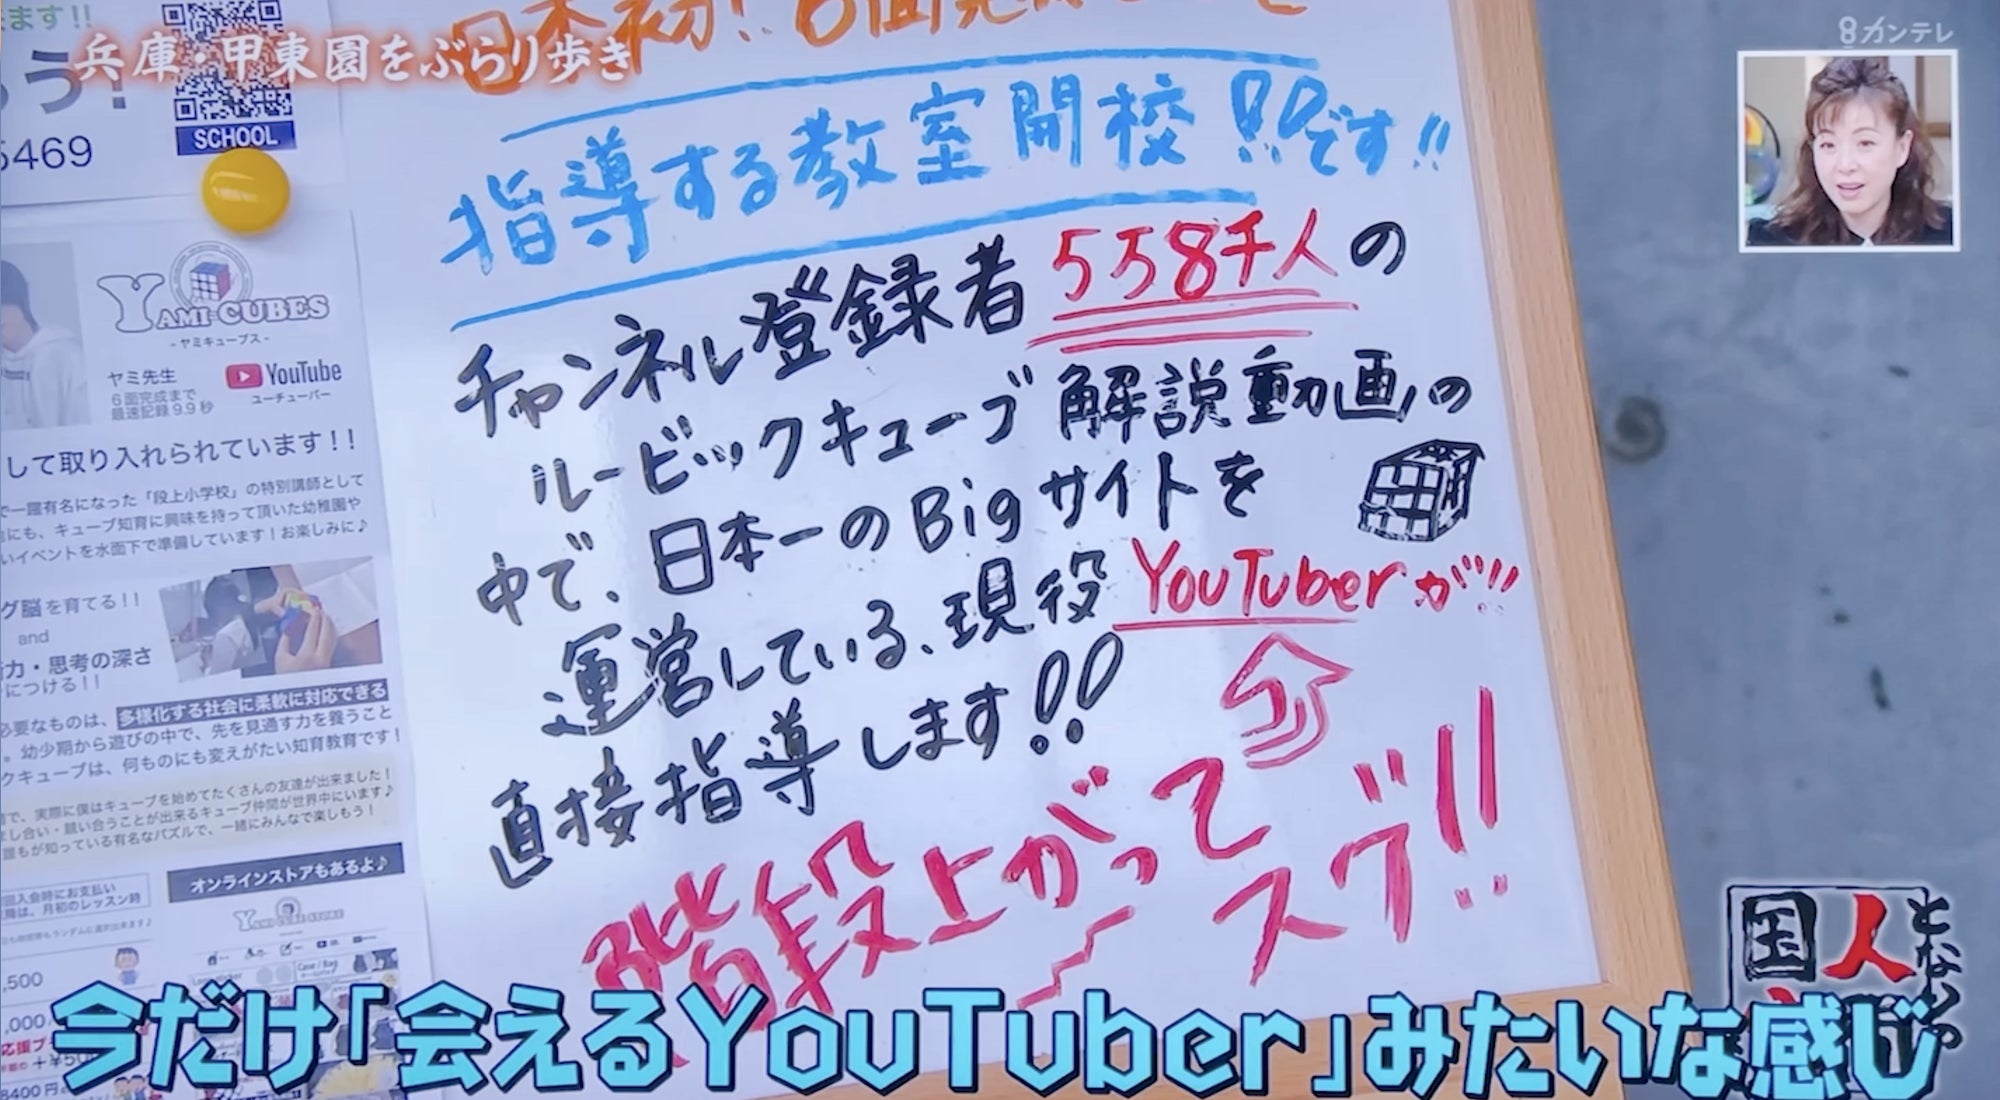 兵庫・甲東園をぶらり歩き
8カンテレ
SCHOOL
5469
指導する教室開校!!です!!
チャンネル登録者558千人の
ルービックキューブ解説動画の
中で、日本一のBigサイトを
運営している、現役YouTuberが!!
直接指導します!!
階段上がって
スグ!!
YAMI CUBES
- ヤミキューブス -
ヤミ先生
6面完成まで
最速記録9.9秒
YouTube
ユーチューバー
して取り入れられています!!
で一躍有名になった「段上小学校」の特別講師として
にも、キューブ知育に興味を持って頂いた幼稚園や
いイベントを水面下で準備しています!お楽しみに♪
グ脳を育てる!!
and
力・思考の深さ
につける!!
必要なものは、多様化する社会に柔軟に対応できる
。幼少期から遊びの中で、先を見通す力を養うこと
クキューブは、何ものにも変えがたい知育教育です!
で、実際に僕はキューブを始めてたくさんの友達が出来ました!
まし合い・競い合うことが出来るキューブ仲間が世界中にいます♪
誰もが知っている有名なパズルで、一緒にみんなで楽しもう!
回入会時にお支払い
降は、月初のレッスン時
オンラインストアもあるよ♪
YAMI CUBE STORE
,500
,000
8400円
となりの
人
国
今だけ「会えるYouTuber」みたいな感じ